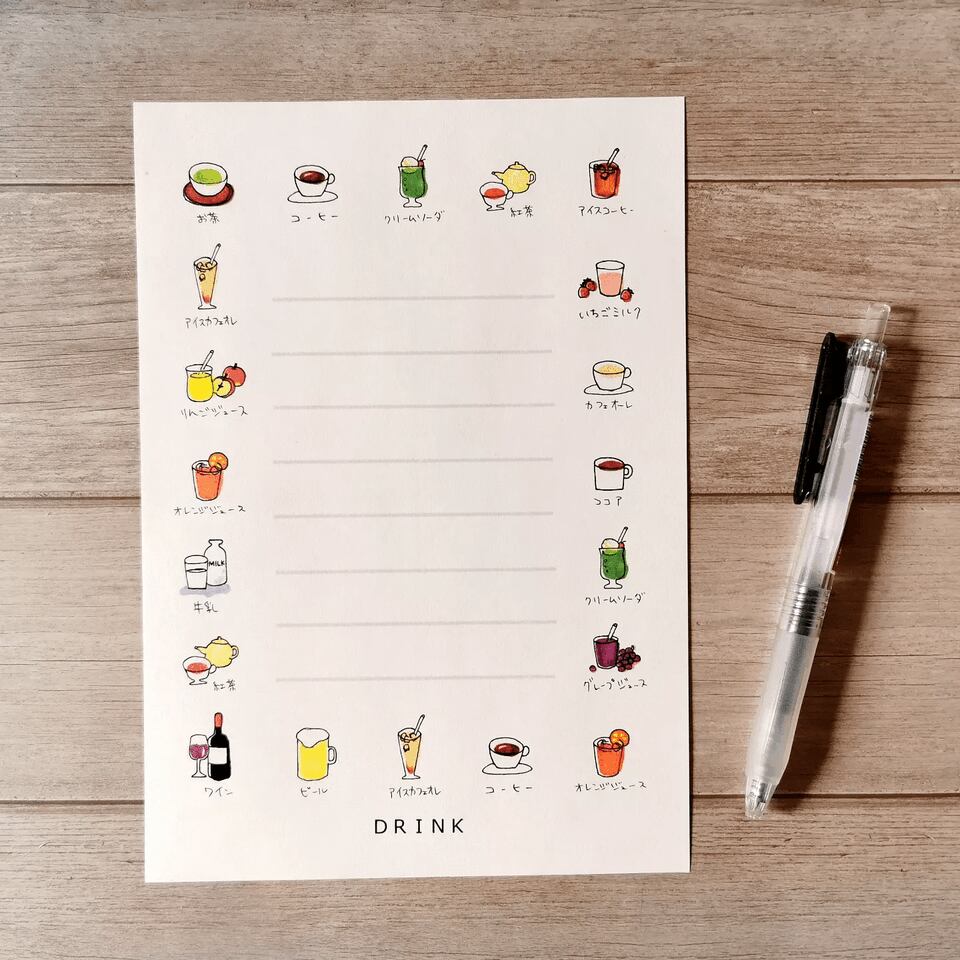 お茶
コーヒー
クリームソーダ
紅茶
アイスコーヒー
アイスカフェオレ
いちごミルク
りんごジュース
カフェオーレ
オレンジジュース
ココア
MILK
牛乳
クリームソーダ
紅茶
グレープジュース
ワイン
ビール
アイスカフェオレ
コーヒー
オレンジジュース
DRINK